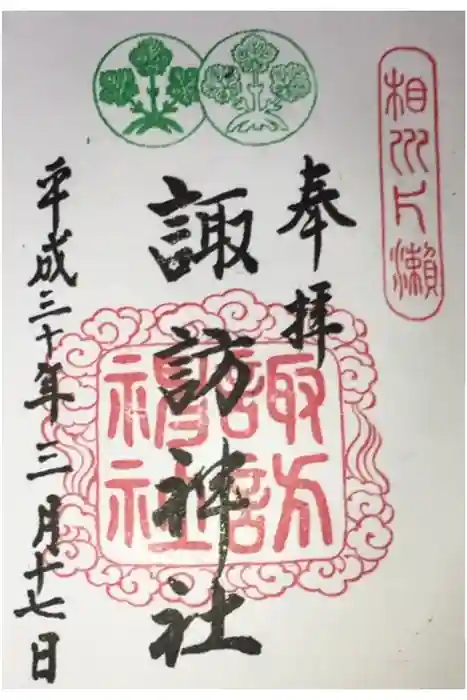 相州片瀬
奉拝
諏訪神社
諏訪
神社
平成三十年三月十七日